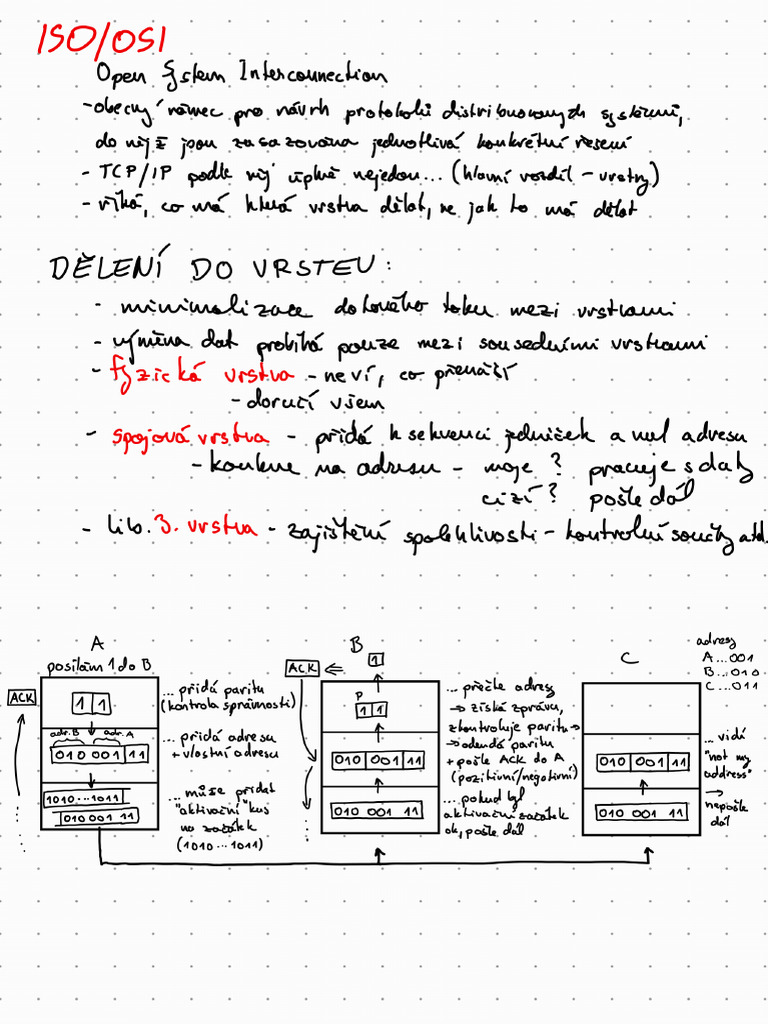 ISO/OSI
Open System Interconnection
- obecný rámec pro návrh protokolů distribuovaných systémů,
do nějž jsou zasazována jednotlivá konkrétní řešení
- TCP/IP podle něj úplně nejedou... (hlavní rozdíl - vrstvy)
- říká, co má která vrstva dělat, ne jak to má dělat
DĚLENÍ DO VRSTEV:
- minimalizace datového toku mezi vrstvami
- výměna dat probíhá pouze mezi sousedními vrstvami
- fyzická vrstva - neví, co přenáší
- doručí všem
- spojová vrstva - přidá k sekvenci jedniček a nul adresu
- koukne na adresu - moje ? pracuje s daty
cizí ? pošle dál
- lib. 3. vrstva - zajištění spolehlivosti - kontrolní součty atd.
A
posílám 1 do B
ACK
1 1
... přidá paritu
(kontrola správnosti)
adr. B adr. A
010 001 11
... přidá adresu
+ vlastní adresu
1010...1011
010 001 11
... může přidat
"aktivační" kus
na začátek
(1010...1011)
B
1
ACK
P
1 1
010 001 11
010 001 11
... přečte adresy
→ získá zprávu,
zkontroluje paritu →
→ odendá paritu
+ pošle ACK do A
(pozitivní/negativní)
... pokud byl
aktivační začátek
ok, pošle dál
C
adresy
A...001
B...010
C...011
010 001 11
010 001 11
... vidí
"not my
address"
→
nepošle
dál